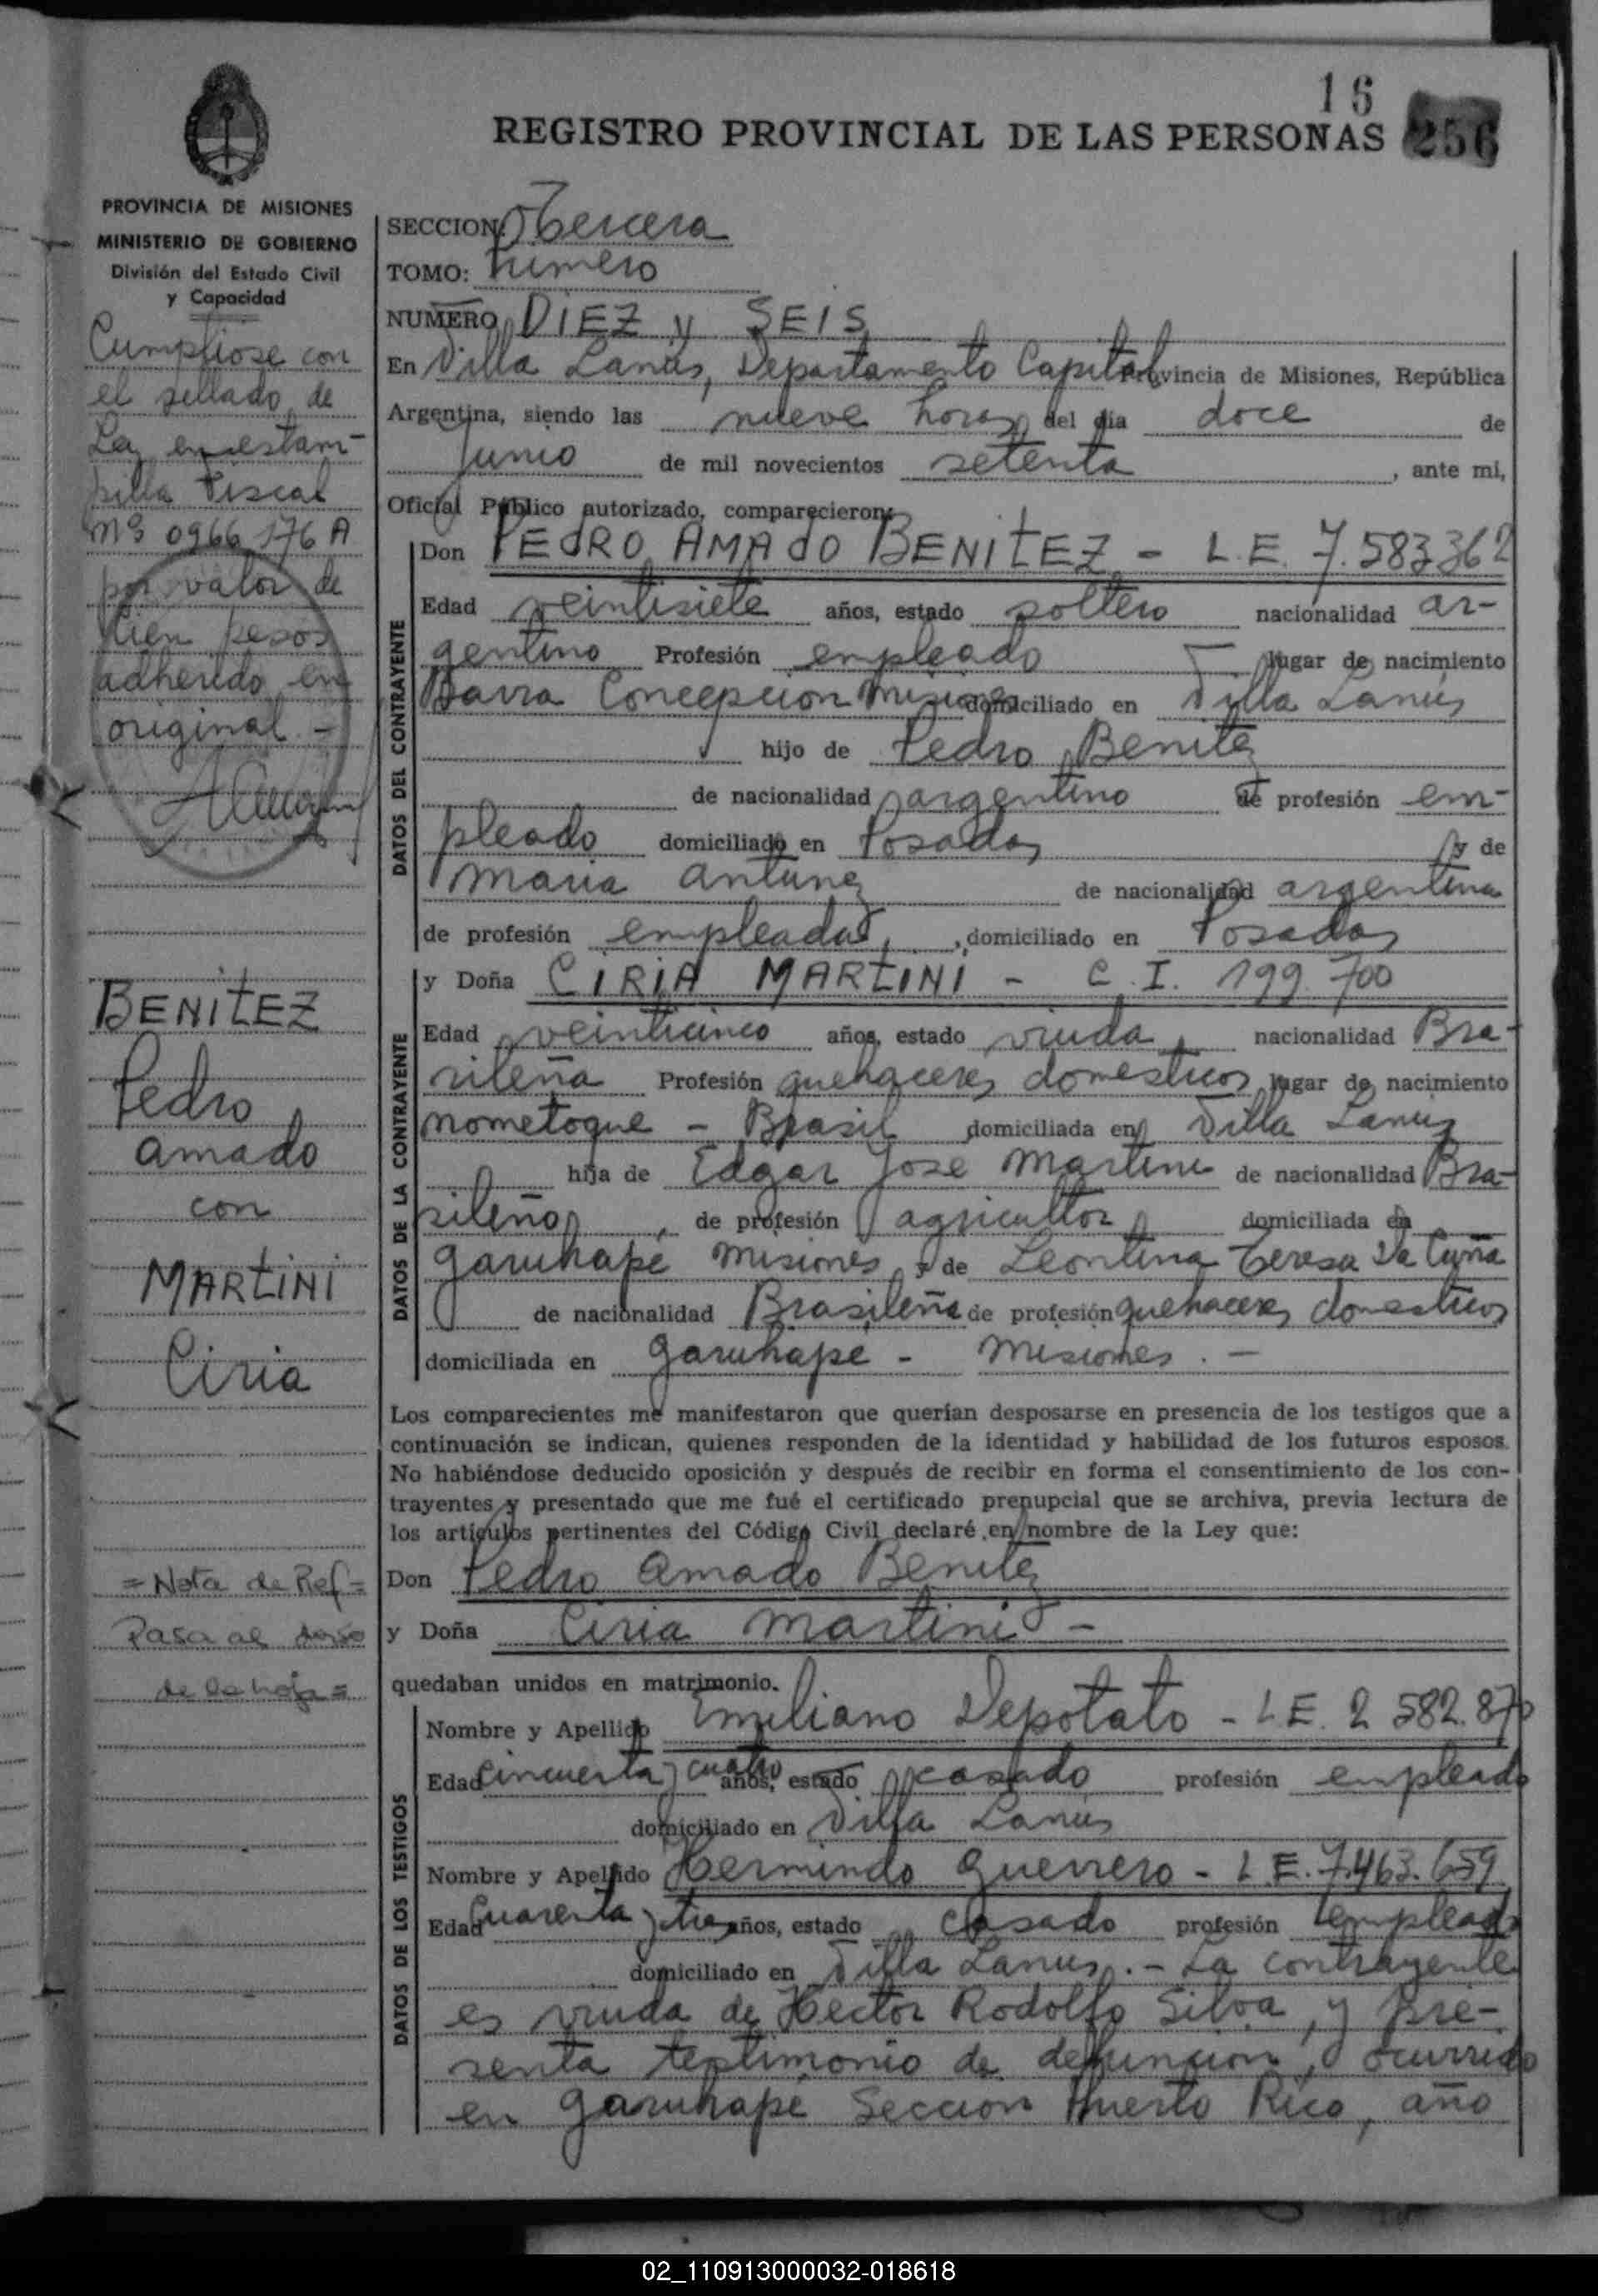 16
REGISTRO PROVINCIAL DE LAS PERSONAS 256
PROVINCIA DE MISIONES
MINISTERIO DE GOBIERNO
División del Estado Civil
y Capacidad
Cumpliose con
el sellado de
Ley en estam-
pilla Fiscal
Nº 0966176 A
por valor de
cien pesos
adherido en
original.-
BENITEZ
Pedro
Amado
con
MARTINI
Ciria
= Nota de Ref =
Pasa al dorso
de la hoja =
SECCION: Tercera
TOMO: Primero
NUMERO DIEZ y SEIS
En Villa Lanús, Departamento Capital Provincia de Misiones, República
Argentina, siendo las nueve horas del día doce de
Junio de mil novecientos setenta, ante mi,
Oficial Público autorizado, comparecieron:
DATOS DEL CONTRAYENTE
Don PEDRO AMADO BENITEZ - L.E. 7.583362
Edad veintisiete años, estado soltero nacionalidad ar-
gentino Profesión empleado lugar de nacimiento
Barra Concepcion Misiones domiciliado en Villa Lanús
hijo de Pedro Benitez
de nacionalidad argentino de profesión em-
pleado domiciliado en Posadas y de
Maria Antunez de nacionalidad argentina
de profesión empleada, domiciliado en Posadas
DATOS DE LA CONTRAYENTE
y Doña CIRIA MARTINI - C.I. 199.700
Edad veinticinco años, estado viuda, nacionalidad Bra-
sileña Profesión quehaceres domesticos lugar de nacimiento
Nometoque - Brasil domiciliada en Villa Lanús
hija de Edgar Jose Martini de nacionalidad Bra-
sileño, de profesión agricultor domiciliada en
Garuhapé Misiones y de Leontina Teresa Da Cuña
de nacionalidad Brasileña de profesión quehaceres domesticos
domiciliada en Garuhape - Misiones.-
Los comparecientes me manifestaron que querían desposarse en presencia de los testigos que a
continuación se indican, quienes responden de la identidad y habilidad de los futuros esposos.
No habiéndose deducido oposición y después de recibir en forma el consentimiento de los con-
trayentes y presentado que me fué el certificado prenupcial que se archiva, previa lectura de
los artículos pertinentes del Código Civil declaré en nombre de la Ley que:
Don Pedro Amado Benitez
y Doña Ciria Martini -
quedaban unidos en matrimonio.
DATOS DE LOS TESTIGOS
Nombre y Apellido Emiliano Depotato - L.E. 2 582.870
Edad Cincuenta y cuatro años, estado casado profesión empleado
domiciliado en Villa Lanús
Nombre y Apellido Hermindo Guerrero - L.E. 7.463.659
Edad Cuarenta y tres años, estado casado profesión empleado
domiciliado en Villa Lanus.- La contrayente
es viuda de Hector Rodolfo Silva, y pre-
senta testimonio de defuncion, ocurrido
en Garuhapé Seccion Puerto Rico, año
02_110913000032-018618